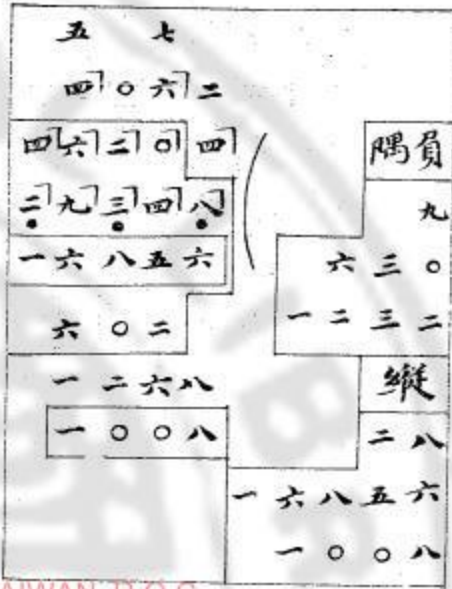 五 七
四 〇 六 二
四 六 二 〇 四
二 九 三 四 八
一 六 八 五 六
六 〇 二
一 二 六 八
一 〇 〇 八
隅負
九
六 三 〇
一 二 三 二
縱
二 八
一 六 八 五 六
一 〇 〇 八